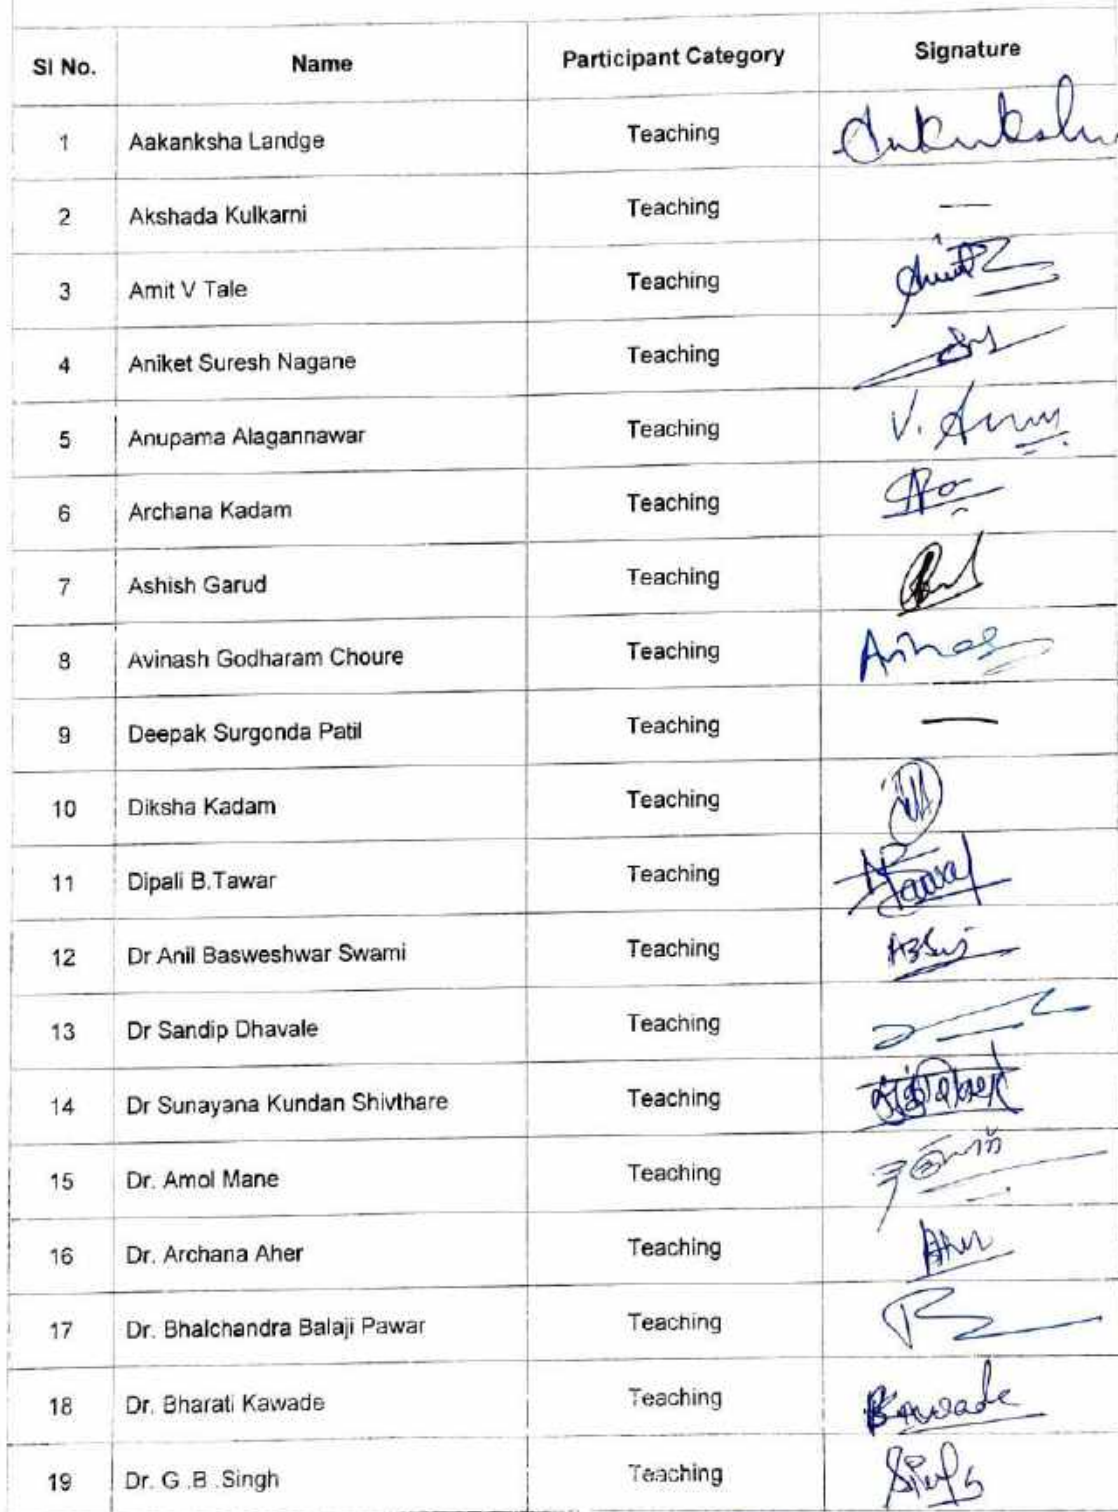 Sl No. Name Participant Category Signature
1 Aakanksha Landge Teaching
2 Akshada Kulkarni Teaching —
3 Amit V Tale Teaching
4 Aniket Suresh Nagane Teaching
5 Anupama Alagannawar Teaching
6 Archana Kadam Teaching
7 Ashish Garud Teaching
8 Avinash Godharam Choure Teaching
9 Deepak Surgonda Patil Teaching —
10 Diksha Kadam Teaching
11 Dipali B.Tawar Teaching
12 Dr Anil Basweshwar Swami Teaching
13 Dr Sandip Dhavale Teaching
14 Dr Sunayana Kundan Shivthare Teaching
15 Dr. Amol Mane Teaching
16 Dr. Archana Aher Teaching
17 Dr. Bhalchandra Balaji Pawar Teaching
18 Dr. Bharati Kawade Teaching BKawade
19 Dr. G .B .Singh Teaching